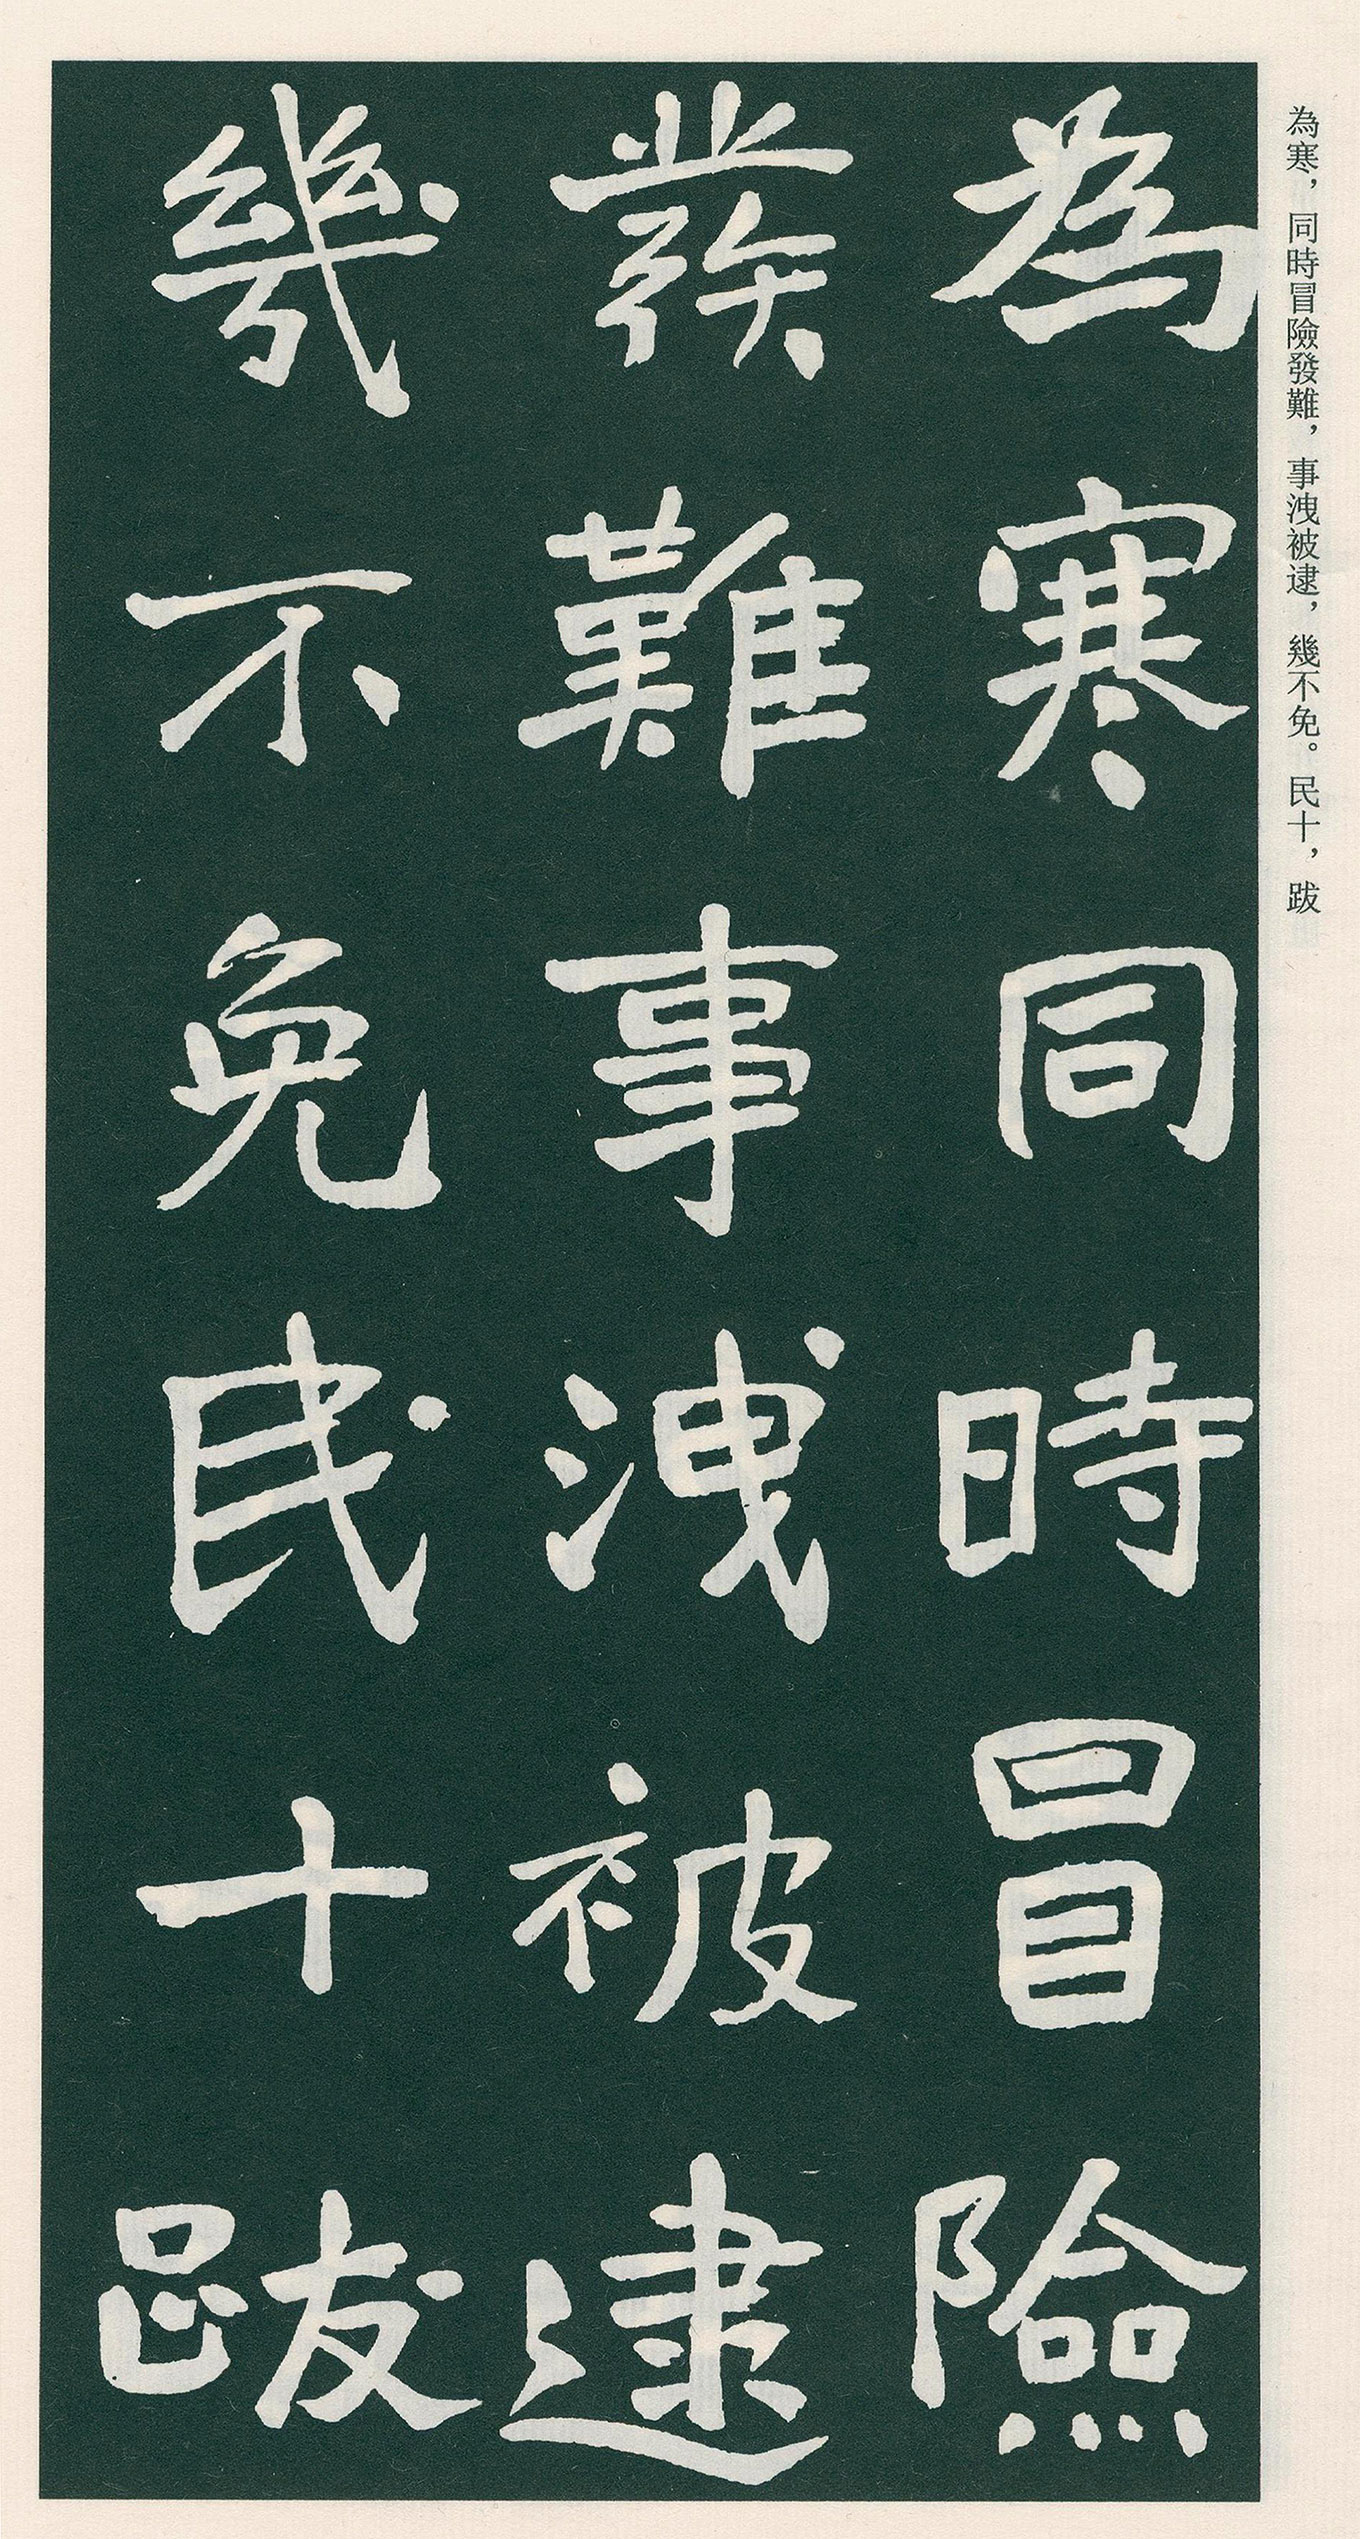 為寒，同時冒險發難，事洩被逮，幾不免。民十，跋
為寒同時冒險
發難事洩被逮
幾不免民十跋